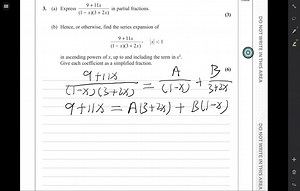 3. (a) Express \frac{9+11x}{(1-x)(3+2x)} in partial fractions.
(3)
(b) Hence, or otherwise, find the series expansion of
\frac{9+11x}{(1-x)(3+2x)} |x| < 1
in ascending powers of x, up to and including the term in x³.
Give each coefficient as a simplified fraction.
(6)
\frac{9+11x}{(1-x)(3+2x)} = \frac{A}{(1-x)} + \frac{B}{3+2x}
9+11x = A(3+2x) + B(1-x)
DO NOT WRITE IN THIS AREA
DO NOT WRITE IN THIS AREA